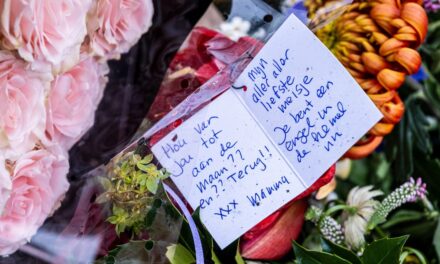 Hou van
jou tot
aan de
maan??
en?? Terug!!
xxx Mamma
Mijn
aller aller
liefste
meisje
Je bent een
engel in
de hemel
nu